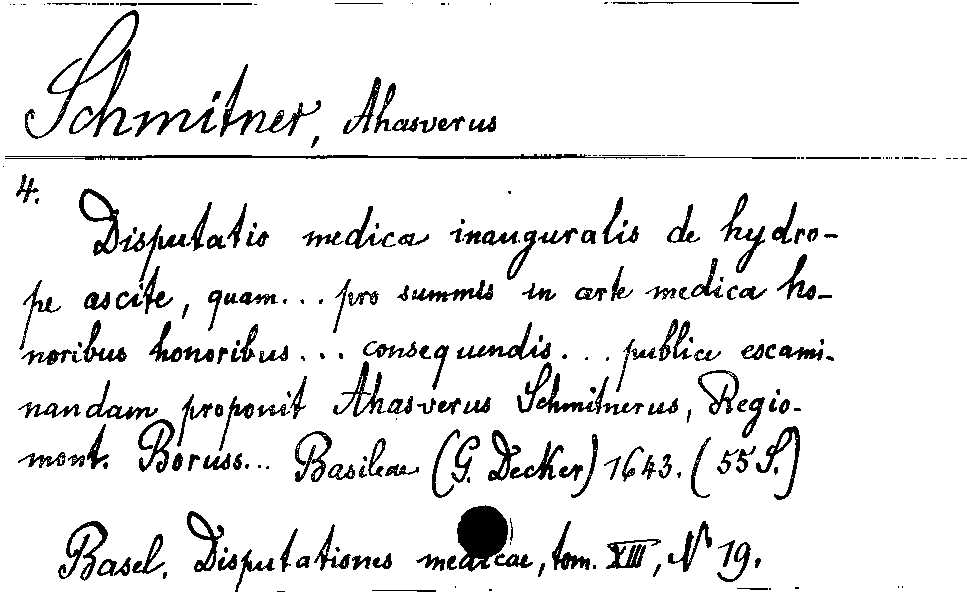 Schmitner, Ahasverus
4.
Disputatio medica inauguralis de hydro-
pe ascite, quam... pro summis in arte medica ho-
noribus honoribus... consequendis... publice escami-
nandam proponit Ahasverus Schmitnerus, Regio-
mont. Boruss... Basileae (G. Decker) 1643. (55 S.)
Basel. Disputationes medicae, tom. XIII, No 19.